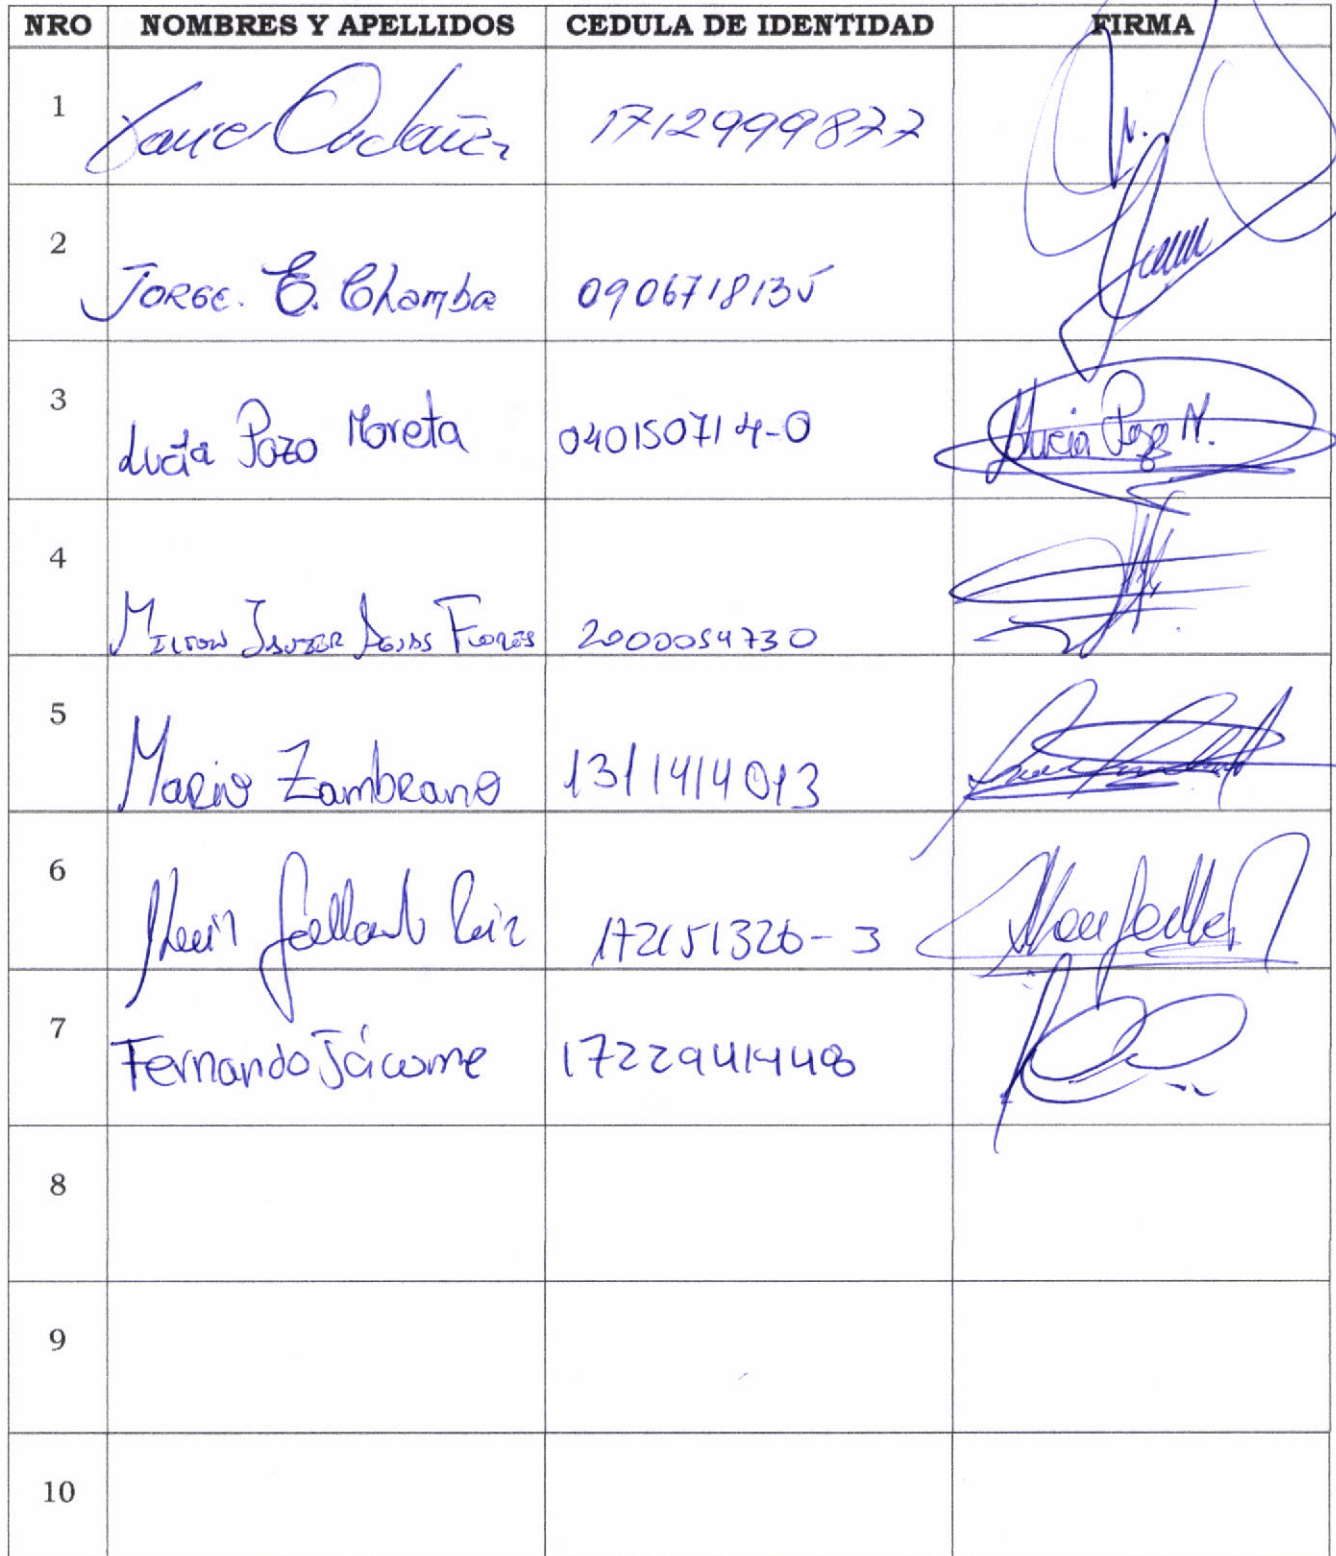 NRO NOMBRES Y APELLIDOS CEDULA DE IDENTIDAD FIRMA
1 Xavier Ordoñez 1712999877
2 JORGE. E. Chamba 0906718135
3 Lucía Pozo Moreta 040150714-0 Lucia Pozo M.
4 MILTON JAVIER FLORES 2000054730
5 Mario Zambrano 1311414013
6 172151326-3
7 Fernando Jácome 1722941448
8
9
10